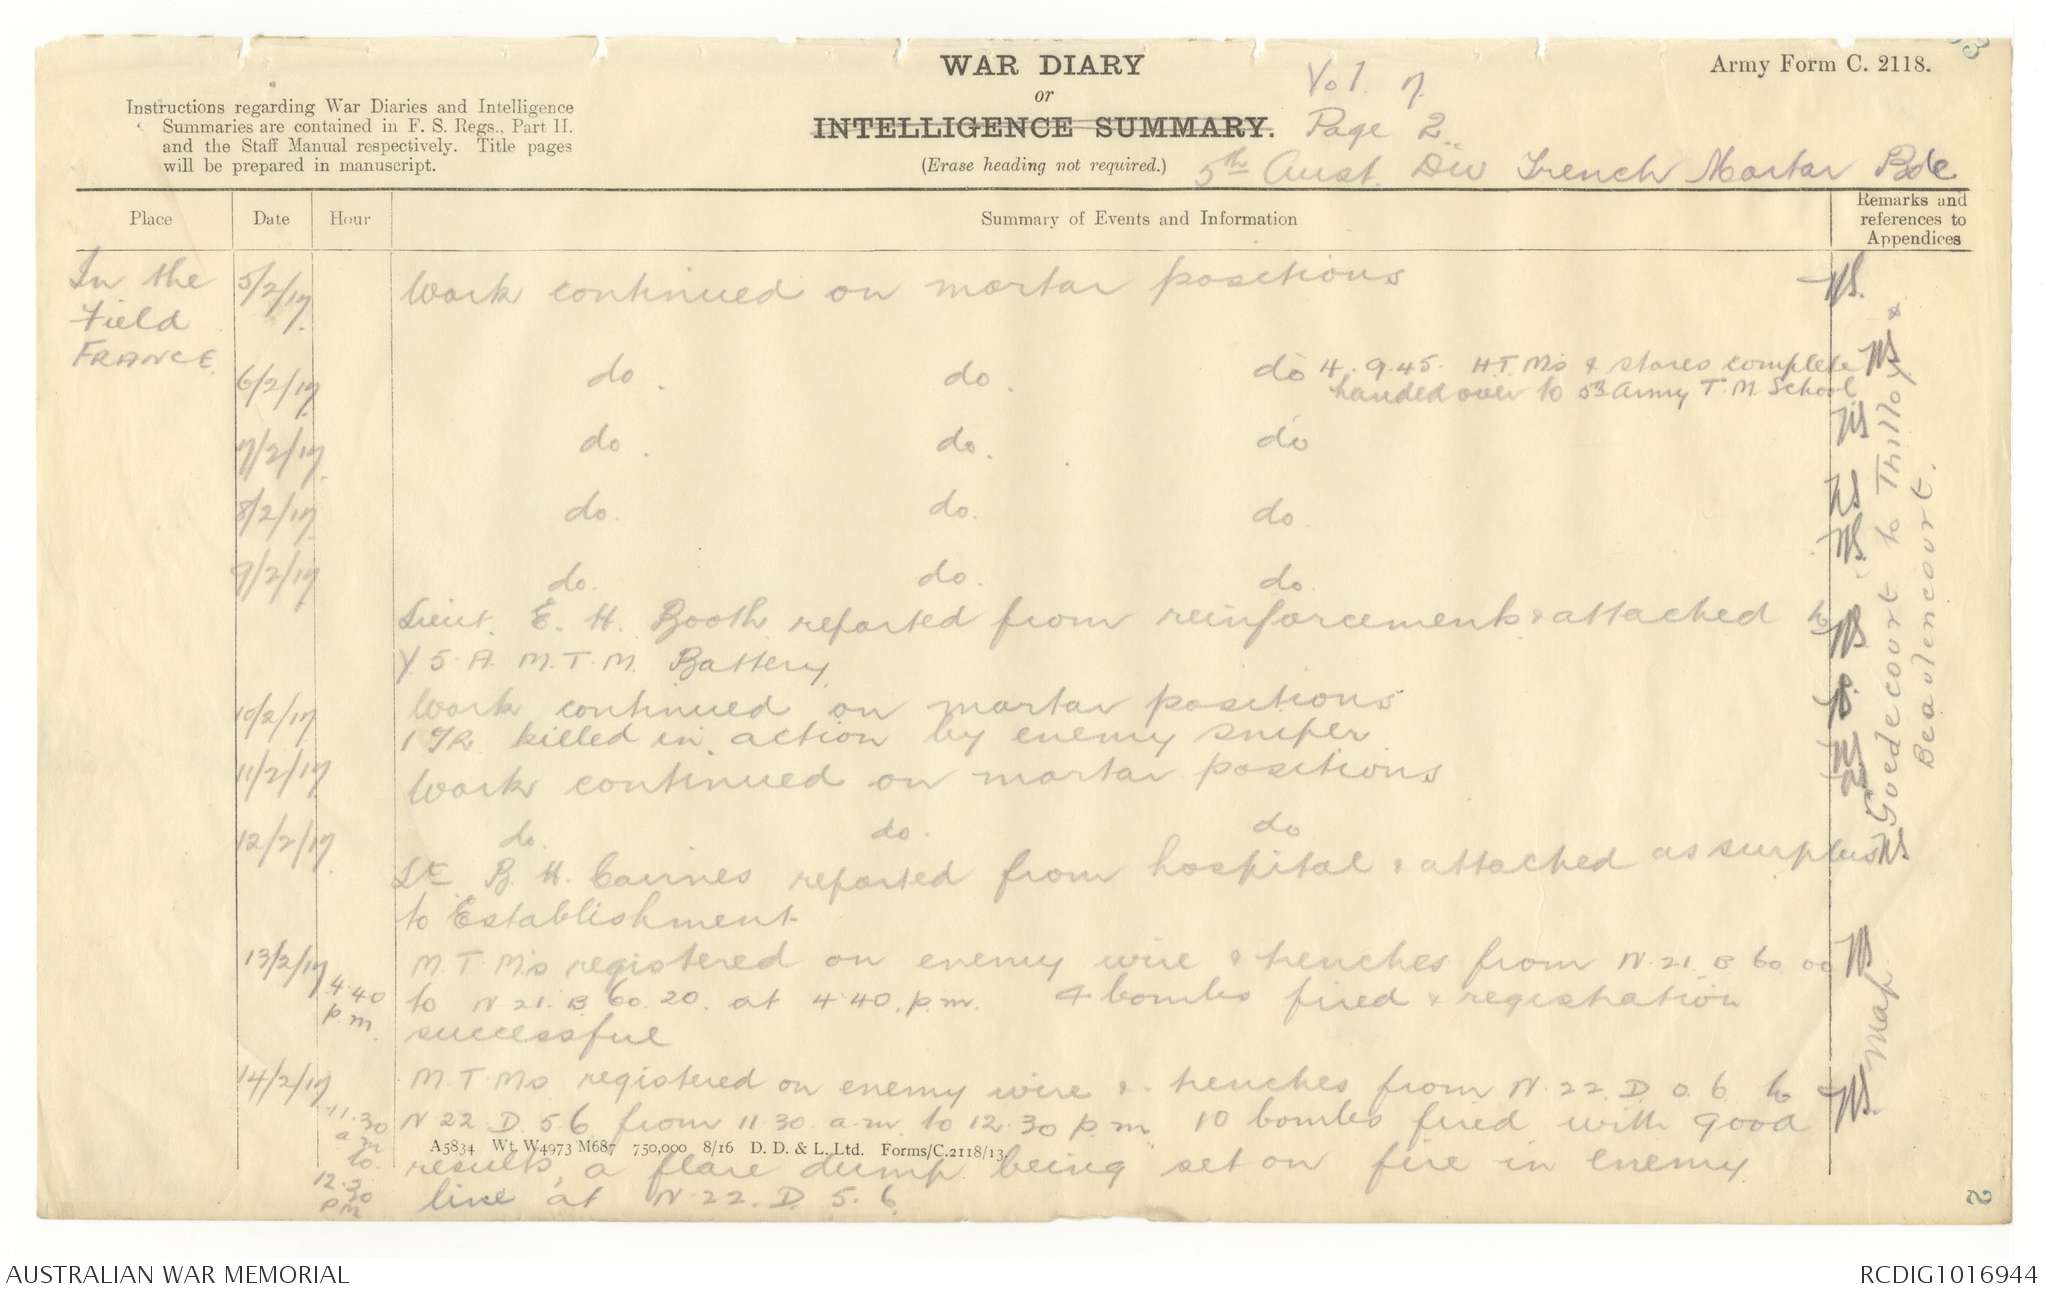 WAR DIARY
or
INTELLIGENCE SUMMARY.
(Erase heading not required.)
Army Form C. 2118.
Instructions regarding War Diaries and Intelligence
Summaries are contained in F. S. Regs., Part II.
and the Staff Manual respectively. Title pages
will be prepared in manuscript.
Vol. 7.
Page 2.
5th Aust. Div Trench Mortar Bde
Place Date Hour Summary of Events and Information Remarks and references to Appendices
In the
Field
FRANCE.
5/2/17. Work continued on mortar positions
6/2/17. do. do. do 4. 9.45. H.T.M's & stores complete
handed over to 5th Army T.M. School
7/2/17. do. do. do
8/2/17 do. do. do.
9/2/17 do. do. do.
Lieut. E. H. Booth reported from reinforcements & attached to
Y. 5. A. M. T. M. Battery.
10/2/17 Work continued on mortar positions
1 killed in action by enemy sniper
11/2/17. Work continued on mortar positions
12/2/17. do. do. do
Lt B. H. reported from hospital & attached as surplus
to Establishment
13/2/17 M.T.M's registered on enemy wire & trenches from N.21.B 60.00
4.40
p.m.
to N 21. B. 60. 20. at 4.40. p.m. 4 bombs fired & registration
successful
14/2/17 M.T.Ms registered on enemy wire & trenches from N.22.D.0.6. to
11.30
a.m
to
12.30
pm
N 22. D. 5.6 from 11.30. a.m. to 12.30 p.m. 10 bombs fired with good
results, a flare dump being set on fire in enemy
line at N.22. D. 5. 6.
Map Guedecourt to Thilloy &
Beaulencourt.
A5834 Wt. W4973 M687 750,000 8/16 D. D. & L. Ltd. Forms/C.2118/13.
2
AUSTRALIAN WAR MEMORIAL
RCDIG1016944